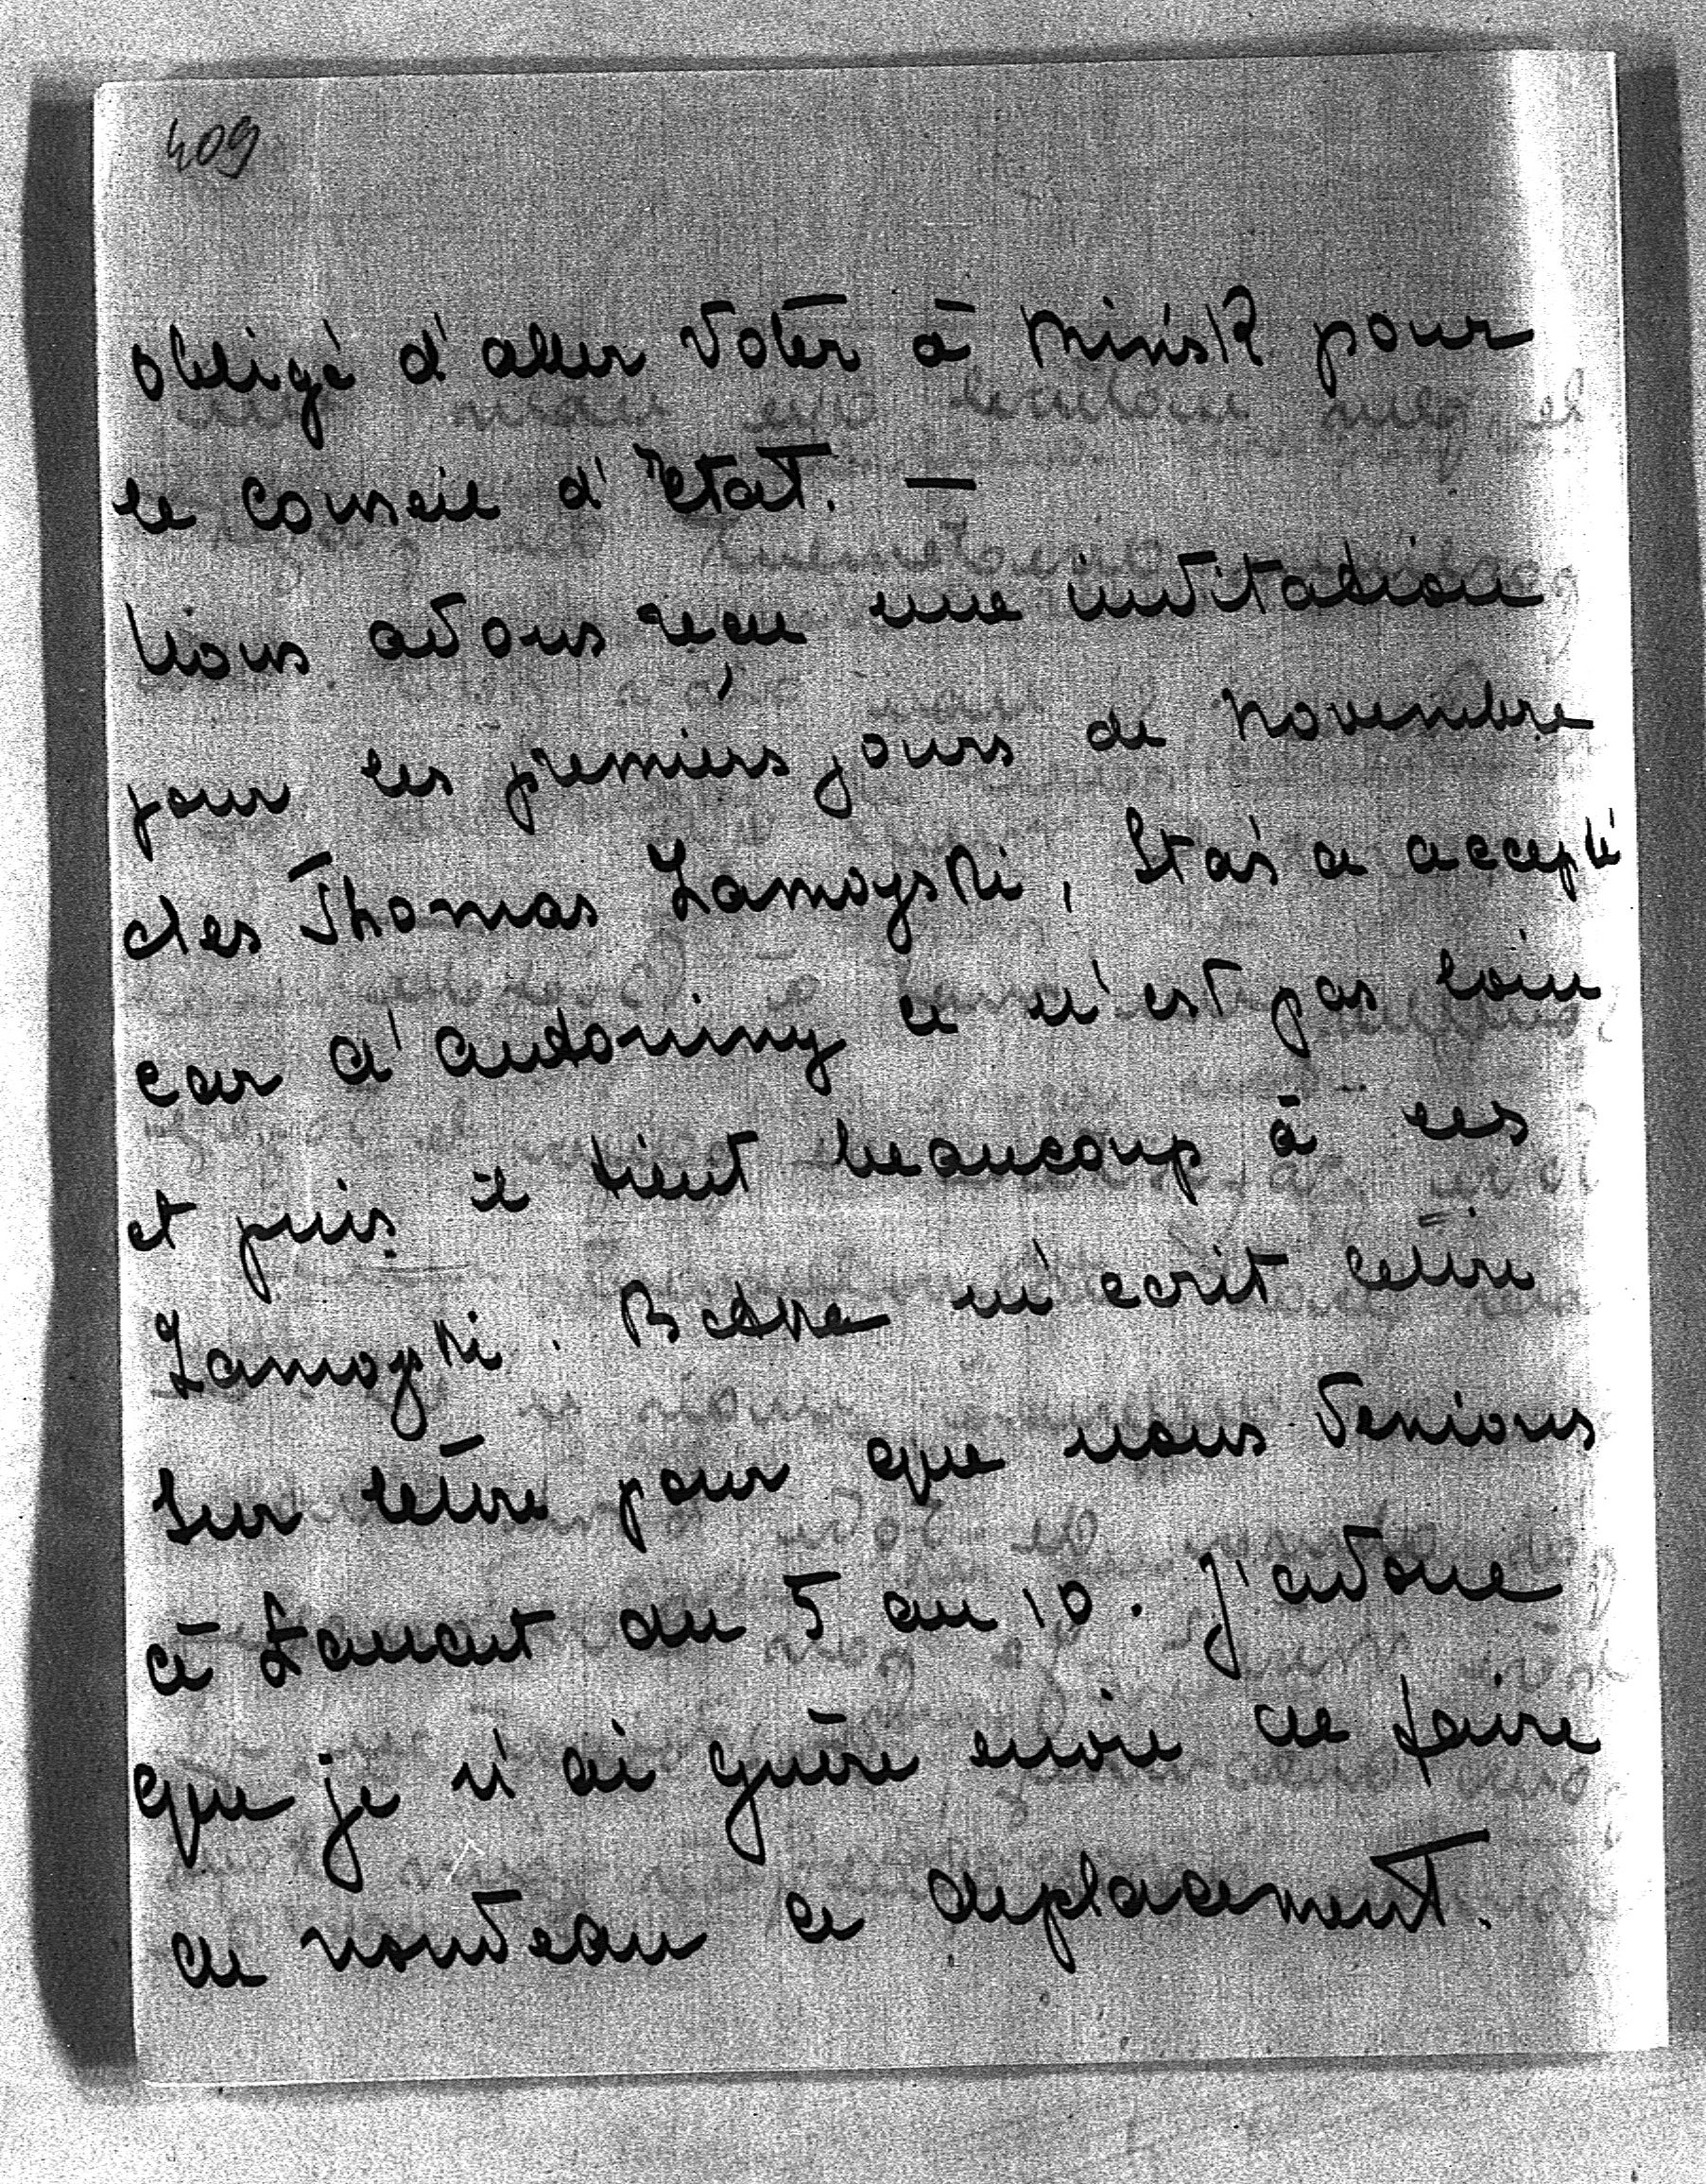 409
obligé d'aller voter à Minsk pour
le Conseil d'Etat. —
Nous avons reçu une invitation
pour les premiers jours de novembre
des Thomas Zamoyski, Staś a accepté
car d'Antoniny ce n'est pas loin
et puis il tient beaucoup à ces
Zamoyski. Betka m'ecrit lettre
sur lettre pour que nous venions
à Łancut du 5 au 10. J'avoue
que je n'ai guère envie de faire
de nouveau ce deplacement.